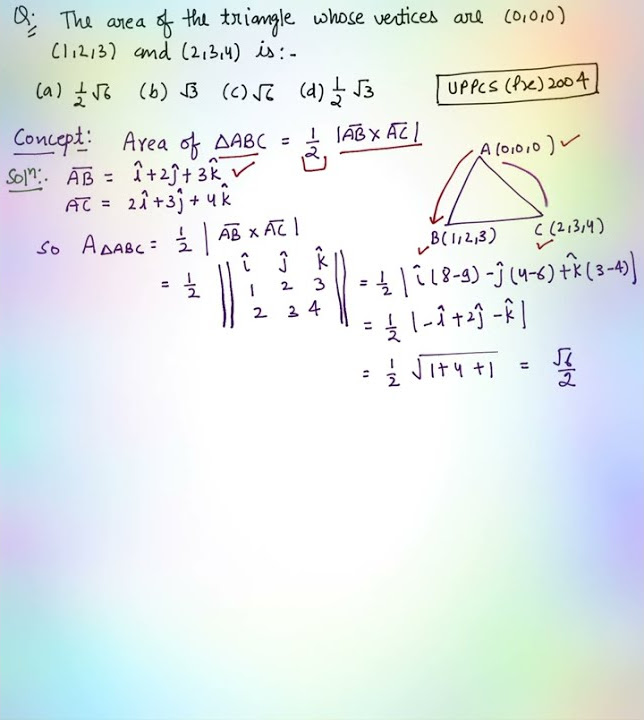 Q:- The area of the triangle whose vertices are (0,0,0)
(1,2,3) and (2,3,4) is:-
(a) 1/2 √6 (b) √3 (c) √6 (d) 1/2 √3
UPPCS (Pre) 2004
Concept: Area of △ABC = 1/2 |A̅B̅ × A̅C̅|
A (0,0,0) ✓
Solⁿ:. A̅B̅ = î+2ĵ+3k̂ ✓
A̅C̅ = 2î+3ĵ+4k̂
B(1,2,3) C (2,3,4)
so A△ABC = 1/2 | A̅B̅ × A̅C̅ |
= 1/2 || î ĵ k̂ || = 1/2 | î (8-9) -ĵ (4-6) +k̂ (3-4)|
1 2 3
2 3 4
= 1/2 |-î +2ĵ -k̂ |
= 1/2 √1+4+1 = √6/2